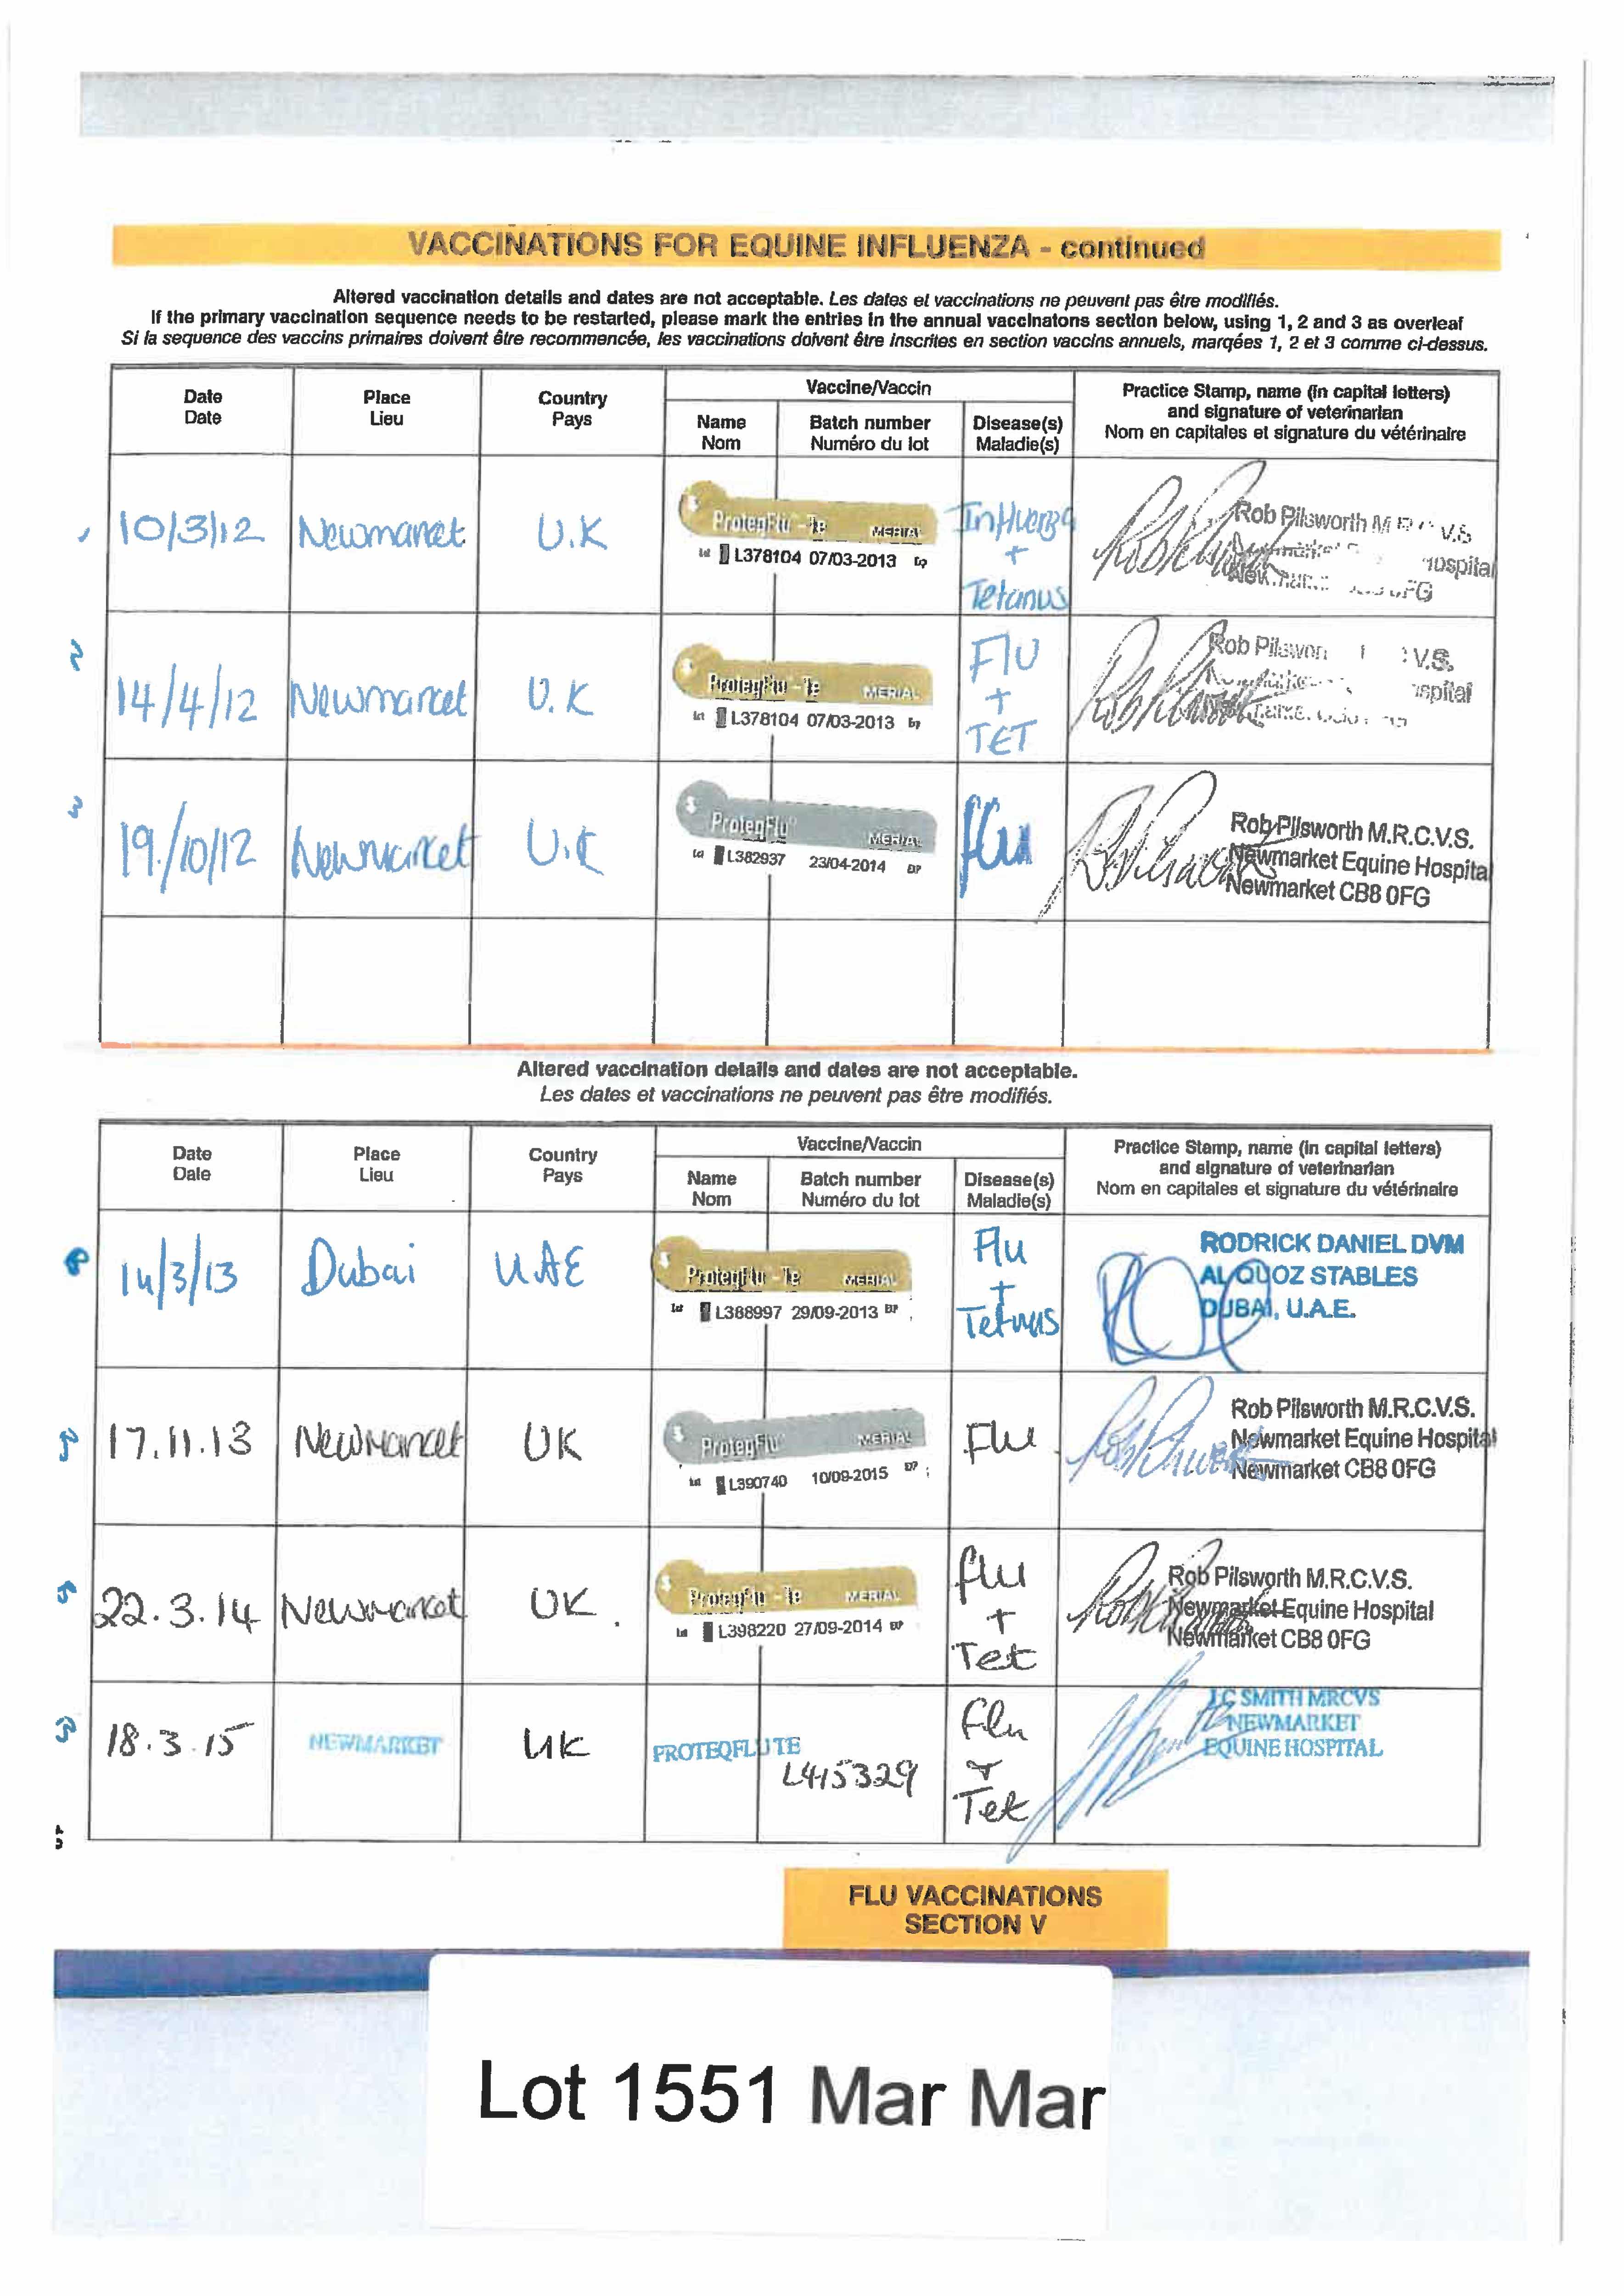 VACCINATIONS FOR EQUINE INFLUENZA - continued
Altered vaccination details and dates are not acceptable. Les dates et vaccinations ne peuvent pas être modifiés.
If the primary vaccination sequence needs to be restarted, please mark the entries in the annual vaccinatons section below, using 1, 2 and 3 as overleaf
Si la sequence des vaccins primaires doivent être recommencée, les vaccinations doivent être inscrites en section vaccins annuels, marqées 1, 2 et 3 comme ci-dessus.
Date Place Country Vaccine/Vaccin Practice Stamp, name (in capital letters)
Date Lieu Pays Name Batch number Disease(s) and signature of veterinarian
Nom Numéro du lot Maladie(s) Nom en capitales et signature du vétérinaire
10/3/12 Newmarket U.K ProteqFlu - Te MERIAL Influenza Rob Pilsworth
L378104 07/03-2013 +
Tetanus
2 14/4/12 Newmarket U.K ProteqFlu - Te MERIAL Flu Rob
L378104 07/03-2013 +
TET
3 19/10/12 Newmarket U.K ProteqFlu MERIAL flu Rob Pilsworth M.R.C.V.S.
L382937 23/04-2014 Newmarket Equine Hospital
Newmarket CB8 0FG
Altered vaccination details and dates are not acceptable.
Les dates et vaccinations ne peuvent pas être modifiés.
Date Place Country Vaccine/Vaccin Practice Stamp, name (in capital letters)
Date Lieu Pays Name Batch number Disease(s) and signature of veterinarian
Nom Numéro du lot Maladie(s) Nom en capitales et signature du vétérinaire
14/3/13 Dubai UAE ProteqFlu - Te MERIAL Flu RODRICK DANIEL DVM
L388997 29/09-2013 + AL QUOZ STABLES
Tetnus DUBAI, U.A.E.
17.11.13 Newmarket UK ProteqFlu MERIAL Flu Rob Pilsworth M.R.C.V.S.
L390740 10/09-2015 Newmarket Equine Hospital
Newmarket CB8 0FG
22.3.14 Newmarket UK. ProteqFlu - Te MERIAL flu Rob Pilsworth M.R.C.V.S.
L398220 27/09-2014 + Newmarket Equine Hospital
Tet Newmarket CB8 0FG
18.3.15 NEWMARKET UK PROTEQFLU TE Flu J.C SMITH MRCVS
L415329 + NEWMARKET
Tet EQUINE HOSPITAL
FLU VACCINATIONS
SECTION V
Lot 1551 Mar Mar